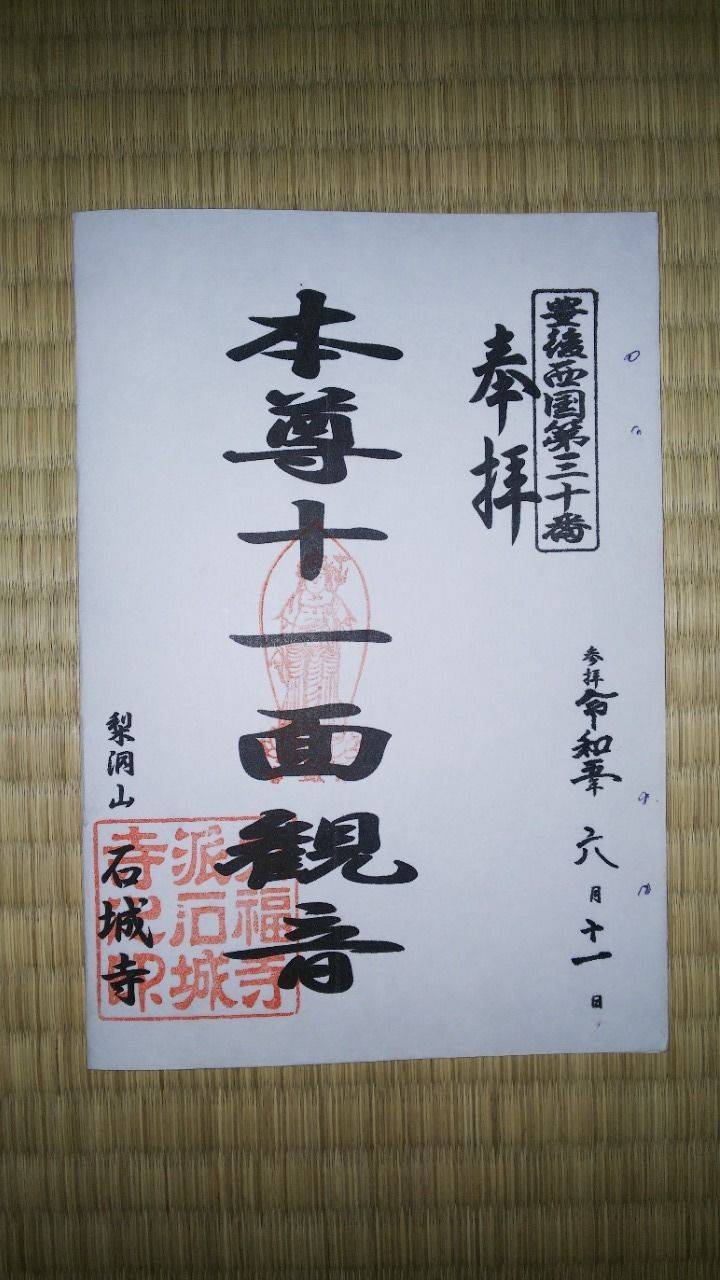 豊後西国第三十番
奉拝
参拝 令和五年 六月十一日
本尊十一面観音
福寺
派石城
寺印
梨洞山
石城寺